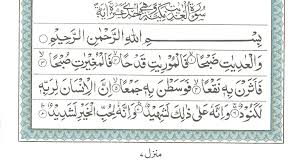 سورة العديت مكية وهى احدى عشرة اية
بِسْمِ اللهِ الرَّحْمٰنِ الرَّحِيْمِ
وَالْعٰدِيٰتِ ضَبْحًا ۝ فَالْمُوْرِيٰتِ قَدْحًا ۝ فَالْمُغِيْرٰتِ صُبْحًا ۝
فَاَثَرْنَ بِهٖ نَقْعًا ۝ فَوَسَطْنَ بِهٖ جَمْعًا ۝ اِنَّ الْاِنْسَانَ لِرَبِّهٖ
لَكَنُوْدٌ ۝ وَاِنَّهٗ عَلٰى ذٰلِكَ لَشَهِيْدٌ ۝ وَاِنَّهٗ لِحُبِّ الْخَيْرِ لَشَدِيْدٌ ۝
منزل ٧